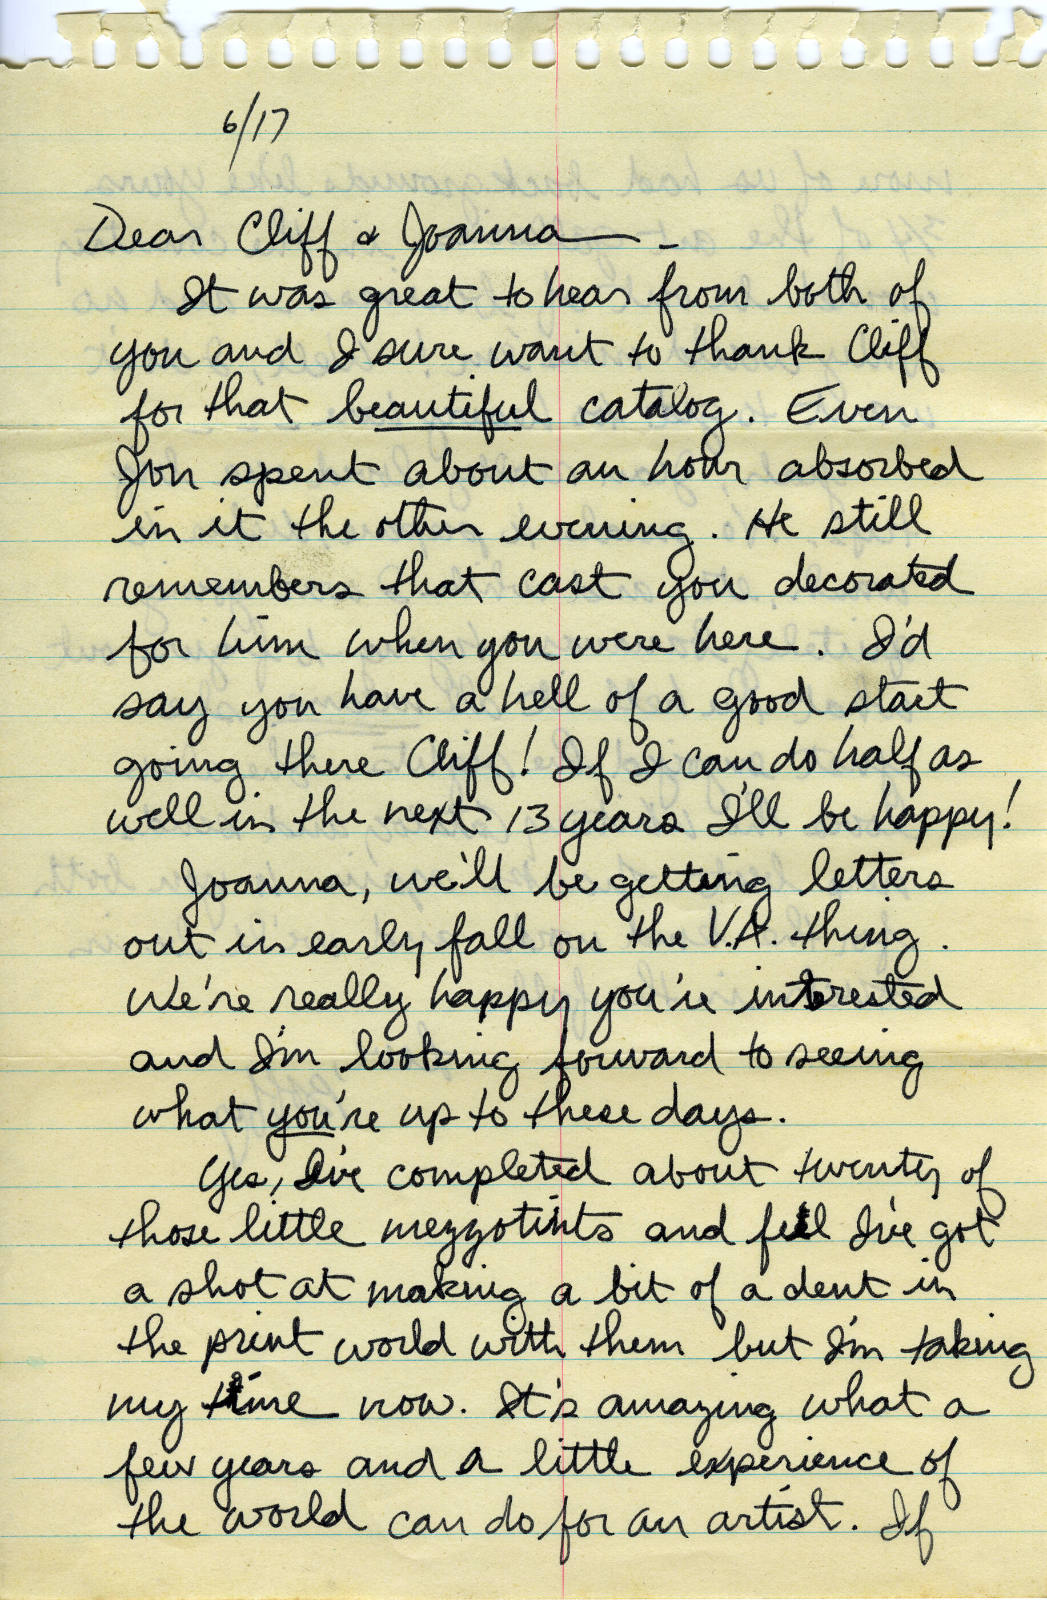 6/17
Dear Cliff & Joanna —
It was great to hear from both of
you and I sure want to thank Cliff
for that beautiful catalog. Even
Jon spent about an hour absorbed
in it the other evening. He still
remembers that cast you decorated
for him when you were here. I'd
say you have a hell of a good start
going there Cliff! If I can do half as
well in the next 13 years I'll be happy!
Joanna, we'll be getting letters
out in early fall on the V.A. thing.
We're really happy you're interested
and I'm looking forward to seeing
what you're up to these days.
Yes, I've completed about twenty of
those little mezzotints and feel I've got
a shot at making a bit of a dent in
the print world with them but I'm taking
my time now. It's amazing what a
few years and a little experience of
the world can do for an artist. If